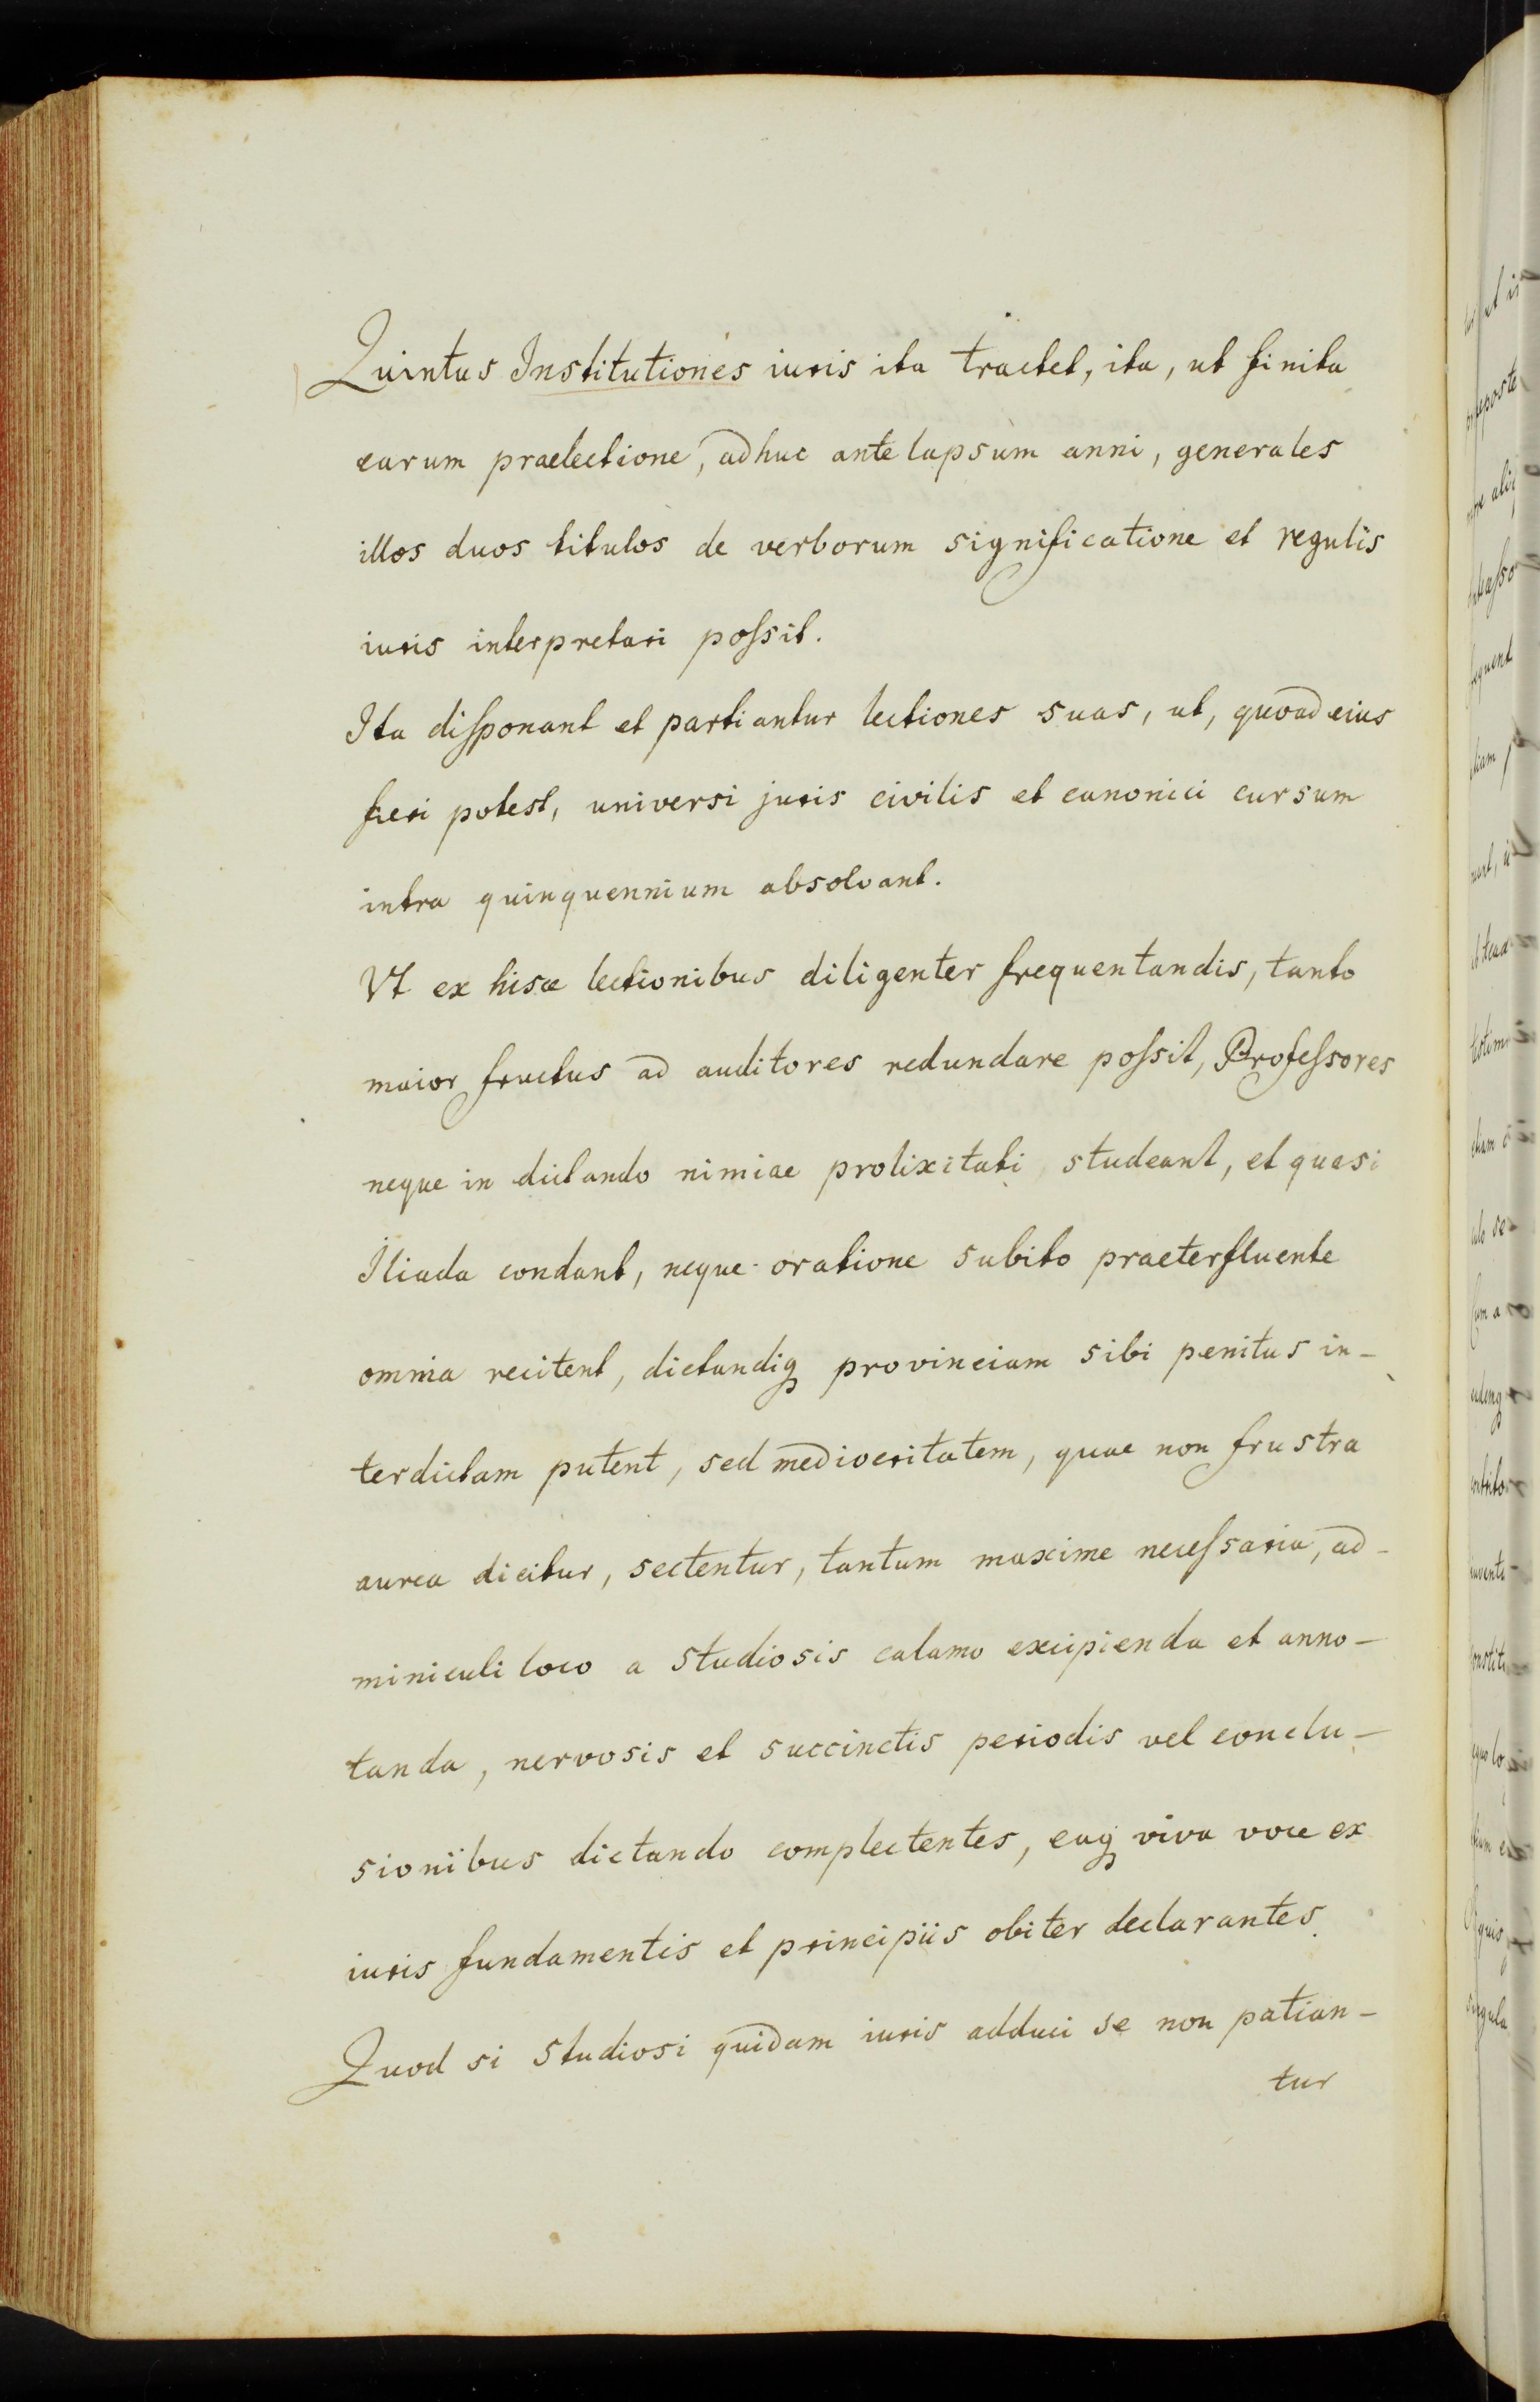 Quintus Institutiones iuris ita tractet, ita, ut finita
earum praelectione, adhuc ante lapsum anni, generales
illos duos titulos de verborum significatione et regulis
iuris interpretari poſsit.
Ita diſponant et partiantur lectiones suas, ut, quoad eius
fieri potest, universi juris civilis et canonici cursum
intra quinquennium absolvant.
Vt ex hisce lectionibus diligenter frequentandis, tanto
maior fructus ad auditores redundare poſsit, Profeſsores
neque in dictando nimiae prolixitati studeant, et quasi
Iliada condant, neque oratione subito praeterfluente
omnia recitent, dictandiq provinciam sibi penitus in-
terdictam putent, sed mediocritatem, quae non frustra
aurea dicitur, sectentur, tantum maxime neceſsaria, ad-
miniculi loco a studiosis calamo excipienda et anno-
tanda, nervosis et succinctis periodis vel conclu-
sionibus dictando complectentes, eaq viva voce ex
iuris fundamentis et principiis obiter declarantes.
Quod si studiosi quidam iuris adduci se non patian-
tur